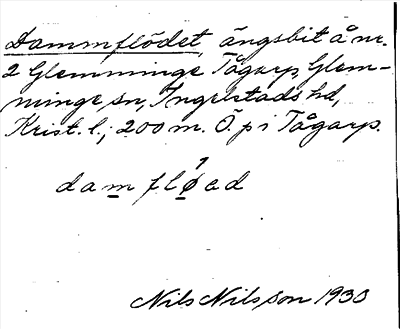 Dammflödet, ängsbit å nr.
2 Glemminge Tågarp, Glem-
minge sn, Ingelstads hd,
Krist. l.; 200 m. Ö. p i Tågarp.
damfløad
Nils Nilsson 1930